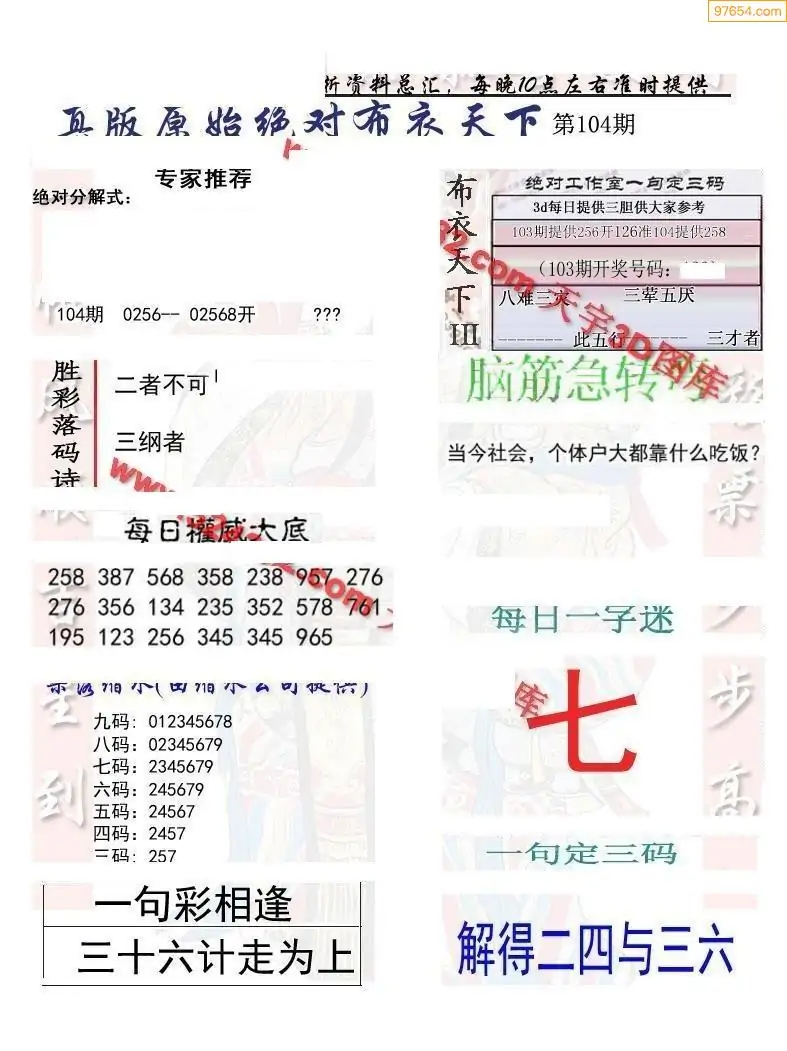 97654.com
料总汇，每晚10点左右准时提供
真版原始绝对布衣天下 第104期
专家推荐
绝对分解式：
104期 0256-- 02568开 ???
胜彩落码诗
二者不可
三纲者
每日權威大底
258 387 568 358 238 957 276
276 356 134 235 352 578 761
195 123 256 345 345 965
九码: 012345678
八码: 02345679
七码: 2345679
六码: 245679
五码: 24567
四码: 2457
三码: 257
一句彩相逢
三十六计走为上
布衣天下III
绝对工作室一句定三码
3d每日提供三胆供大家参考
103期提供256开126准104提供258
(103期开奖号码:
八难三灾 三荤五厌
------- 此五行------- 三才者
天宇3D图库
脑筋急转
当今社会，个体户大都靠什么吃饭？
每日一字迷
七
一句定三码
解得二四与三六